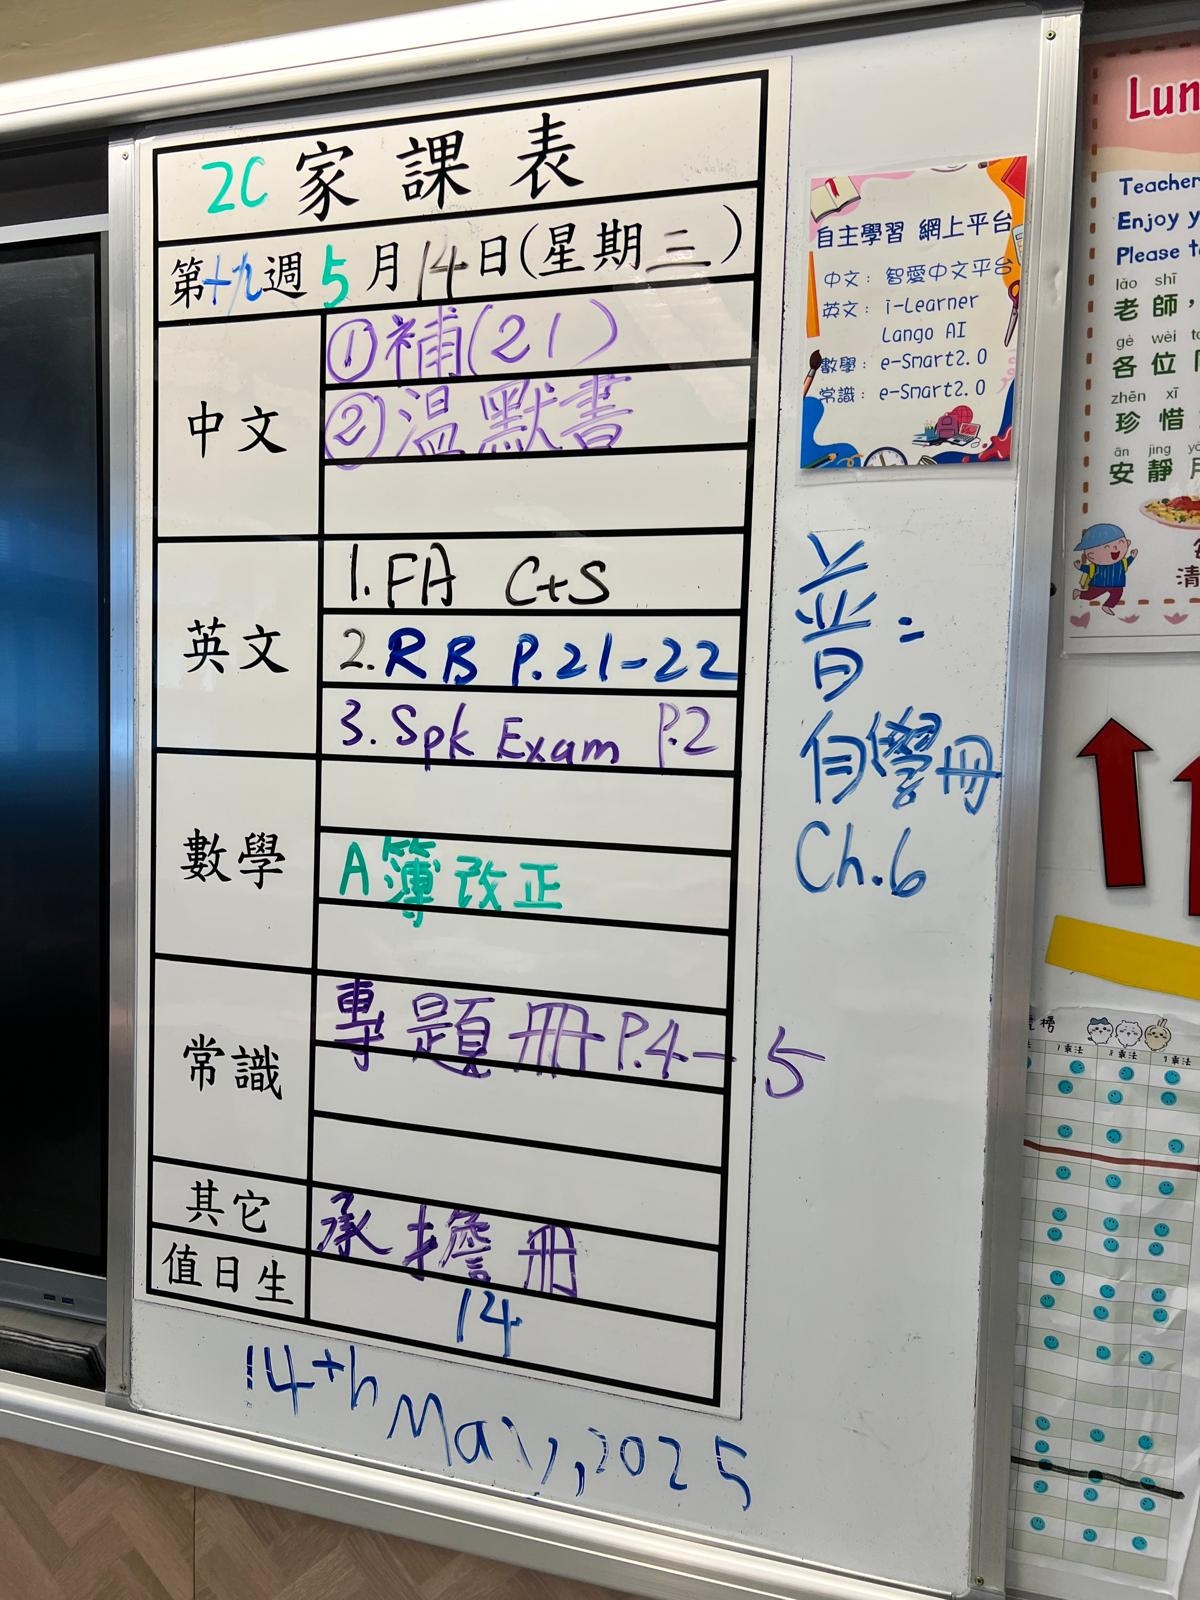 2C 家課表
第十九週 5月14日(星期三)
中文
①補(21)
②溫默書
英文
1. FA C+S
2. RB P.21-22
3. Spk Exam P.2
數學
A簿改正
常識
專題冊P.4-5
其它
承擔冊
值日生
14
14th May, 2025
自主學習 網上平台
中文：智愛中文平台
英文：i-Learner
Lango AI
數學：e-Smart2.0
常識：e-Smart2.0
普：
自學冊
Ch.6
Lun
Teacher
Enjoy y
Please t
lǎo shī
老師，
gè wèi
各位
zhēn xī
珍惜
ān jìng
安靜
清